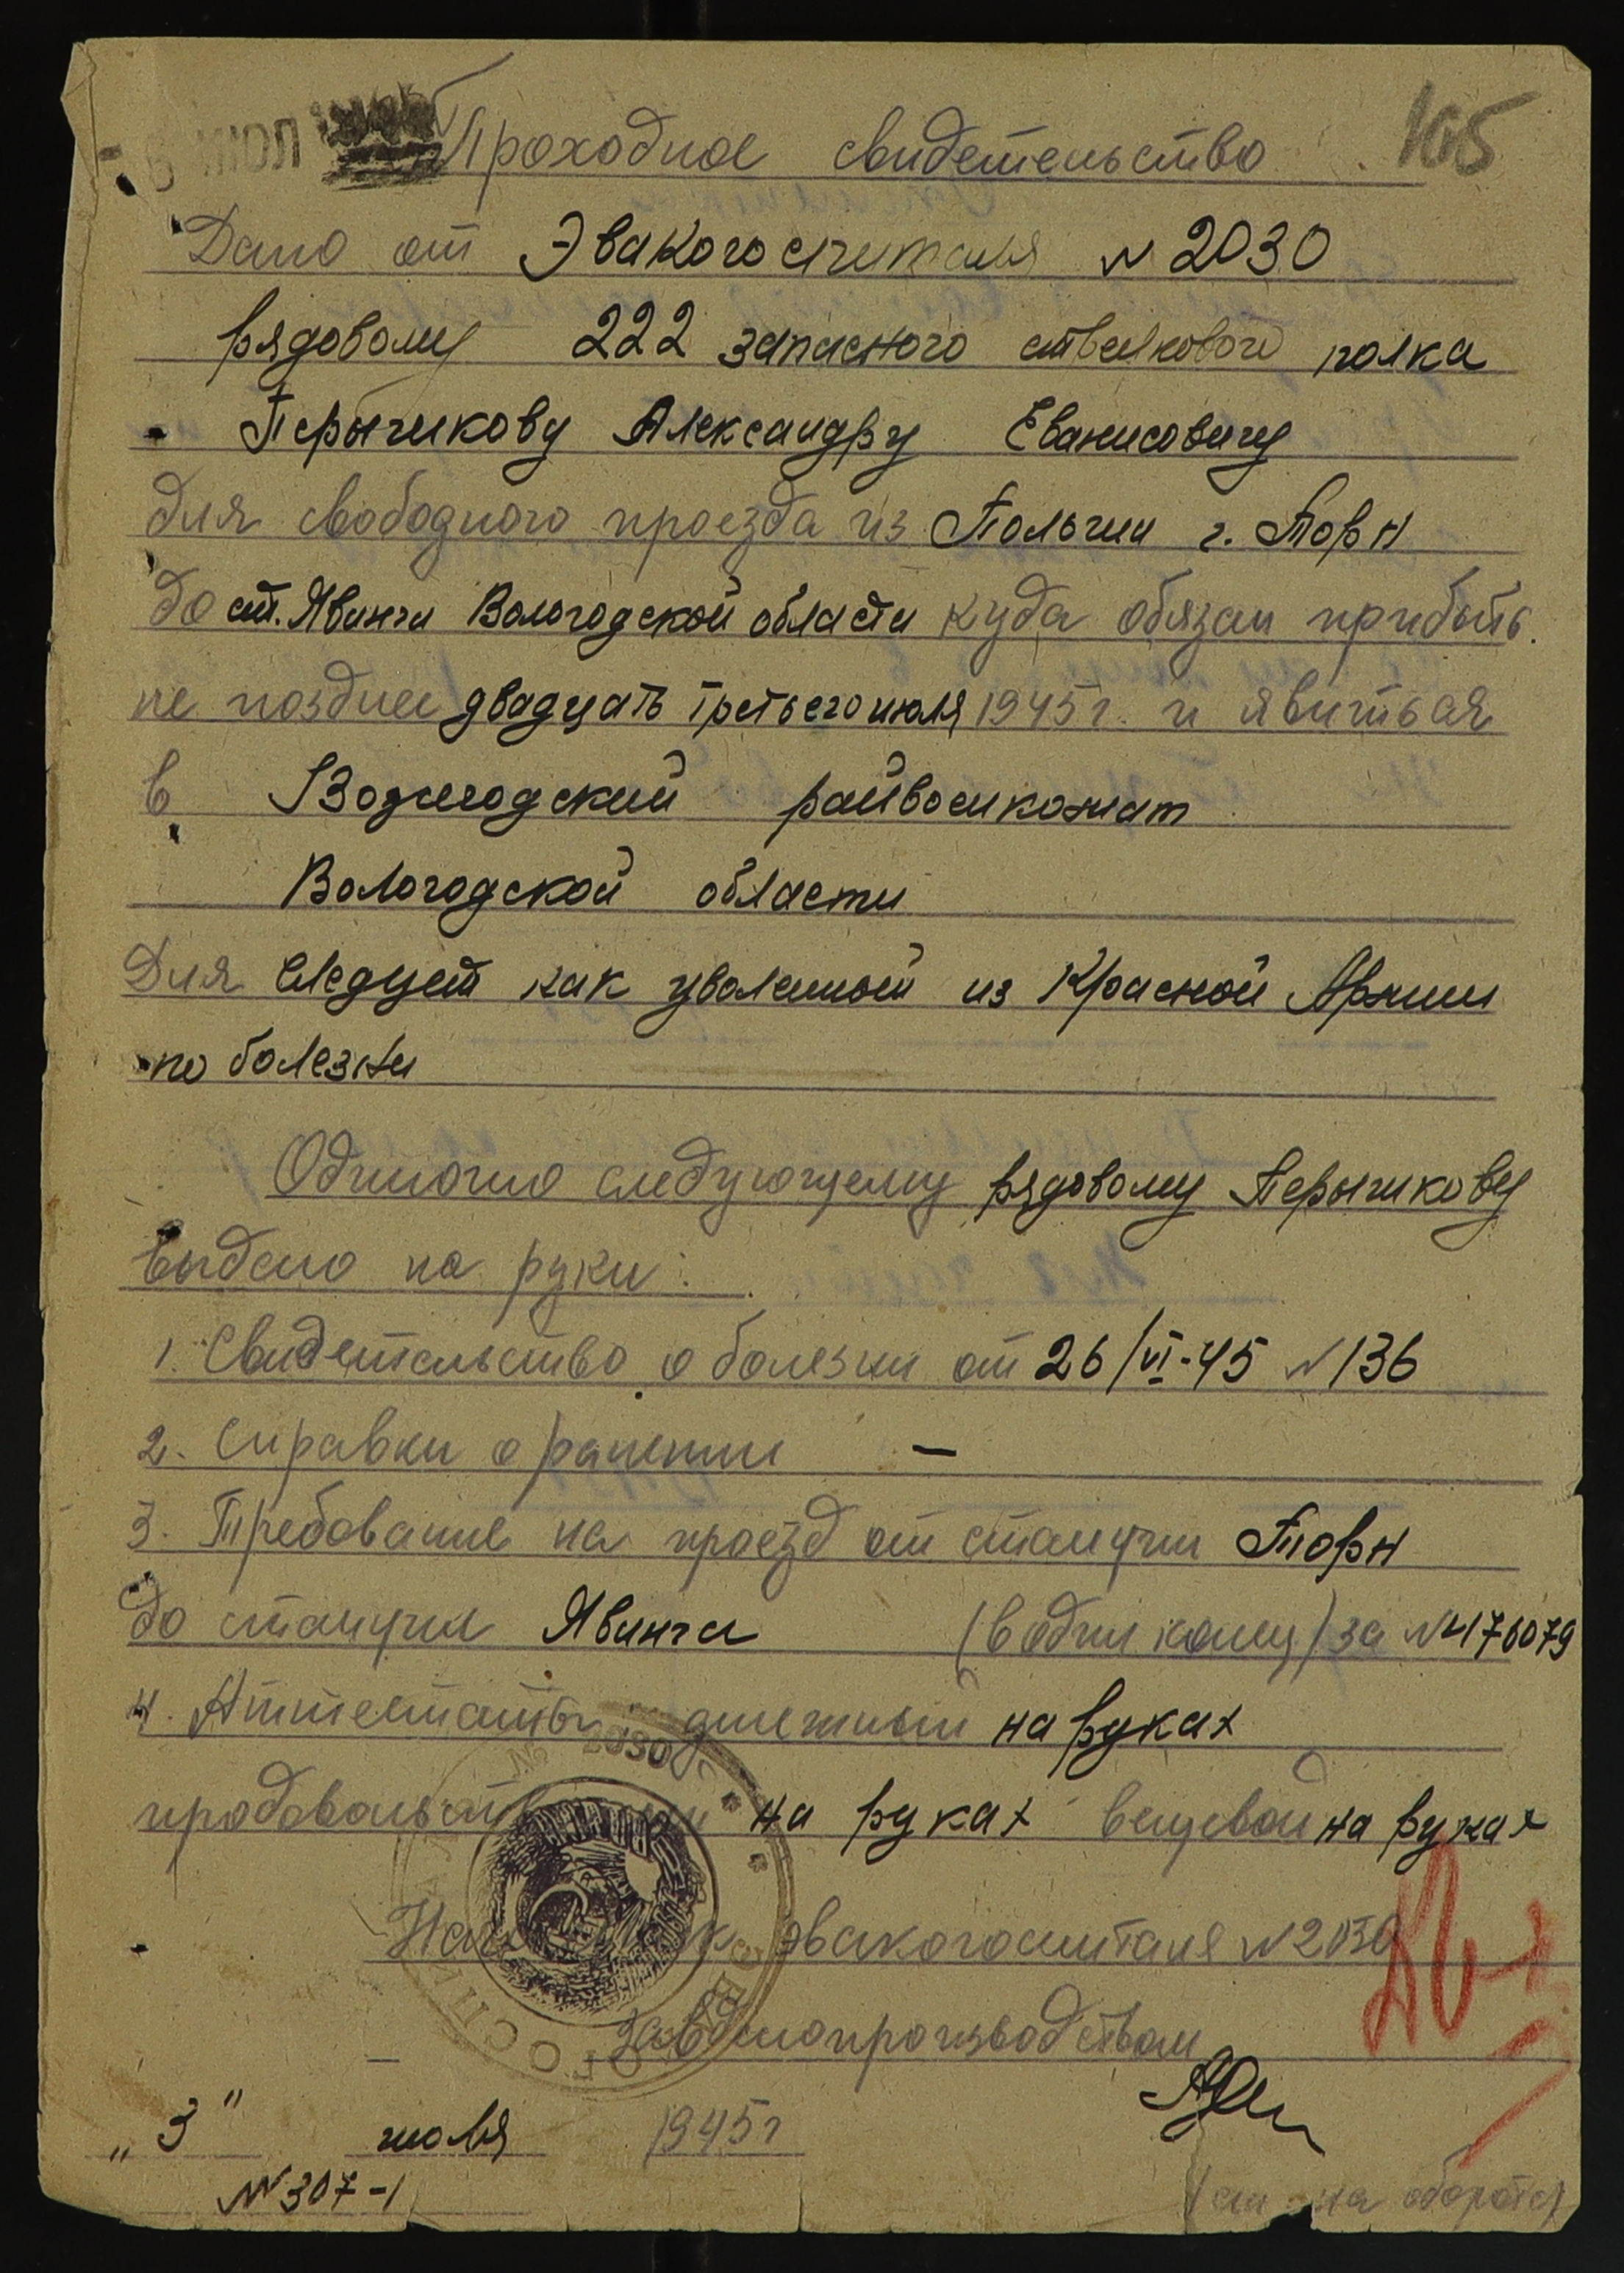 6 ИЮЛ
105
Проходное свидетельство
Дано от Эвакогоспиталя № 2030
рядовому 222 запасного стрелкового полка
Перычикову Александру
для свободного проезда из Польши г. Торн
до ст. Явинги Вологодской области куда обязан прибыть
не позднее двадцать третьего июля 1945 г. и явиться
в Вожегодский райвоенкомат
Вологодской области
Для следует как уволенный из Красной Армии
по болезни
Одиночно следующему рядовому Перычикову
выдано на руки:
1. Свидетельство о болезни от 26/VI-45 № 136
2. Справки о ранении —
3. Требование на проезд от станции Торн
до станции Явинга (в один конец) за № 4176079
4. Аттестаты: денежный на руках
продовольственный на руках вещевой на руках
Начальник эвакогоспиталя № 2030
Завделопроизводством
„3" июля 1945 г
№ 307-1
(см. на обороте)
№ 2030
ГОСПИТАЛЬ